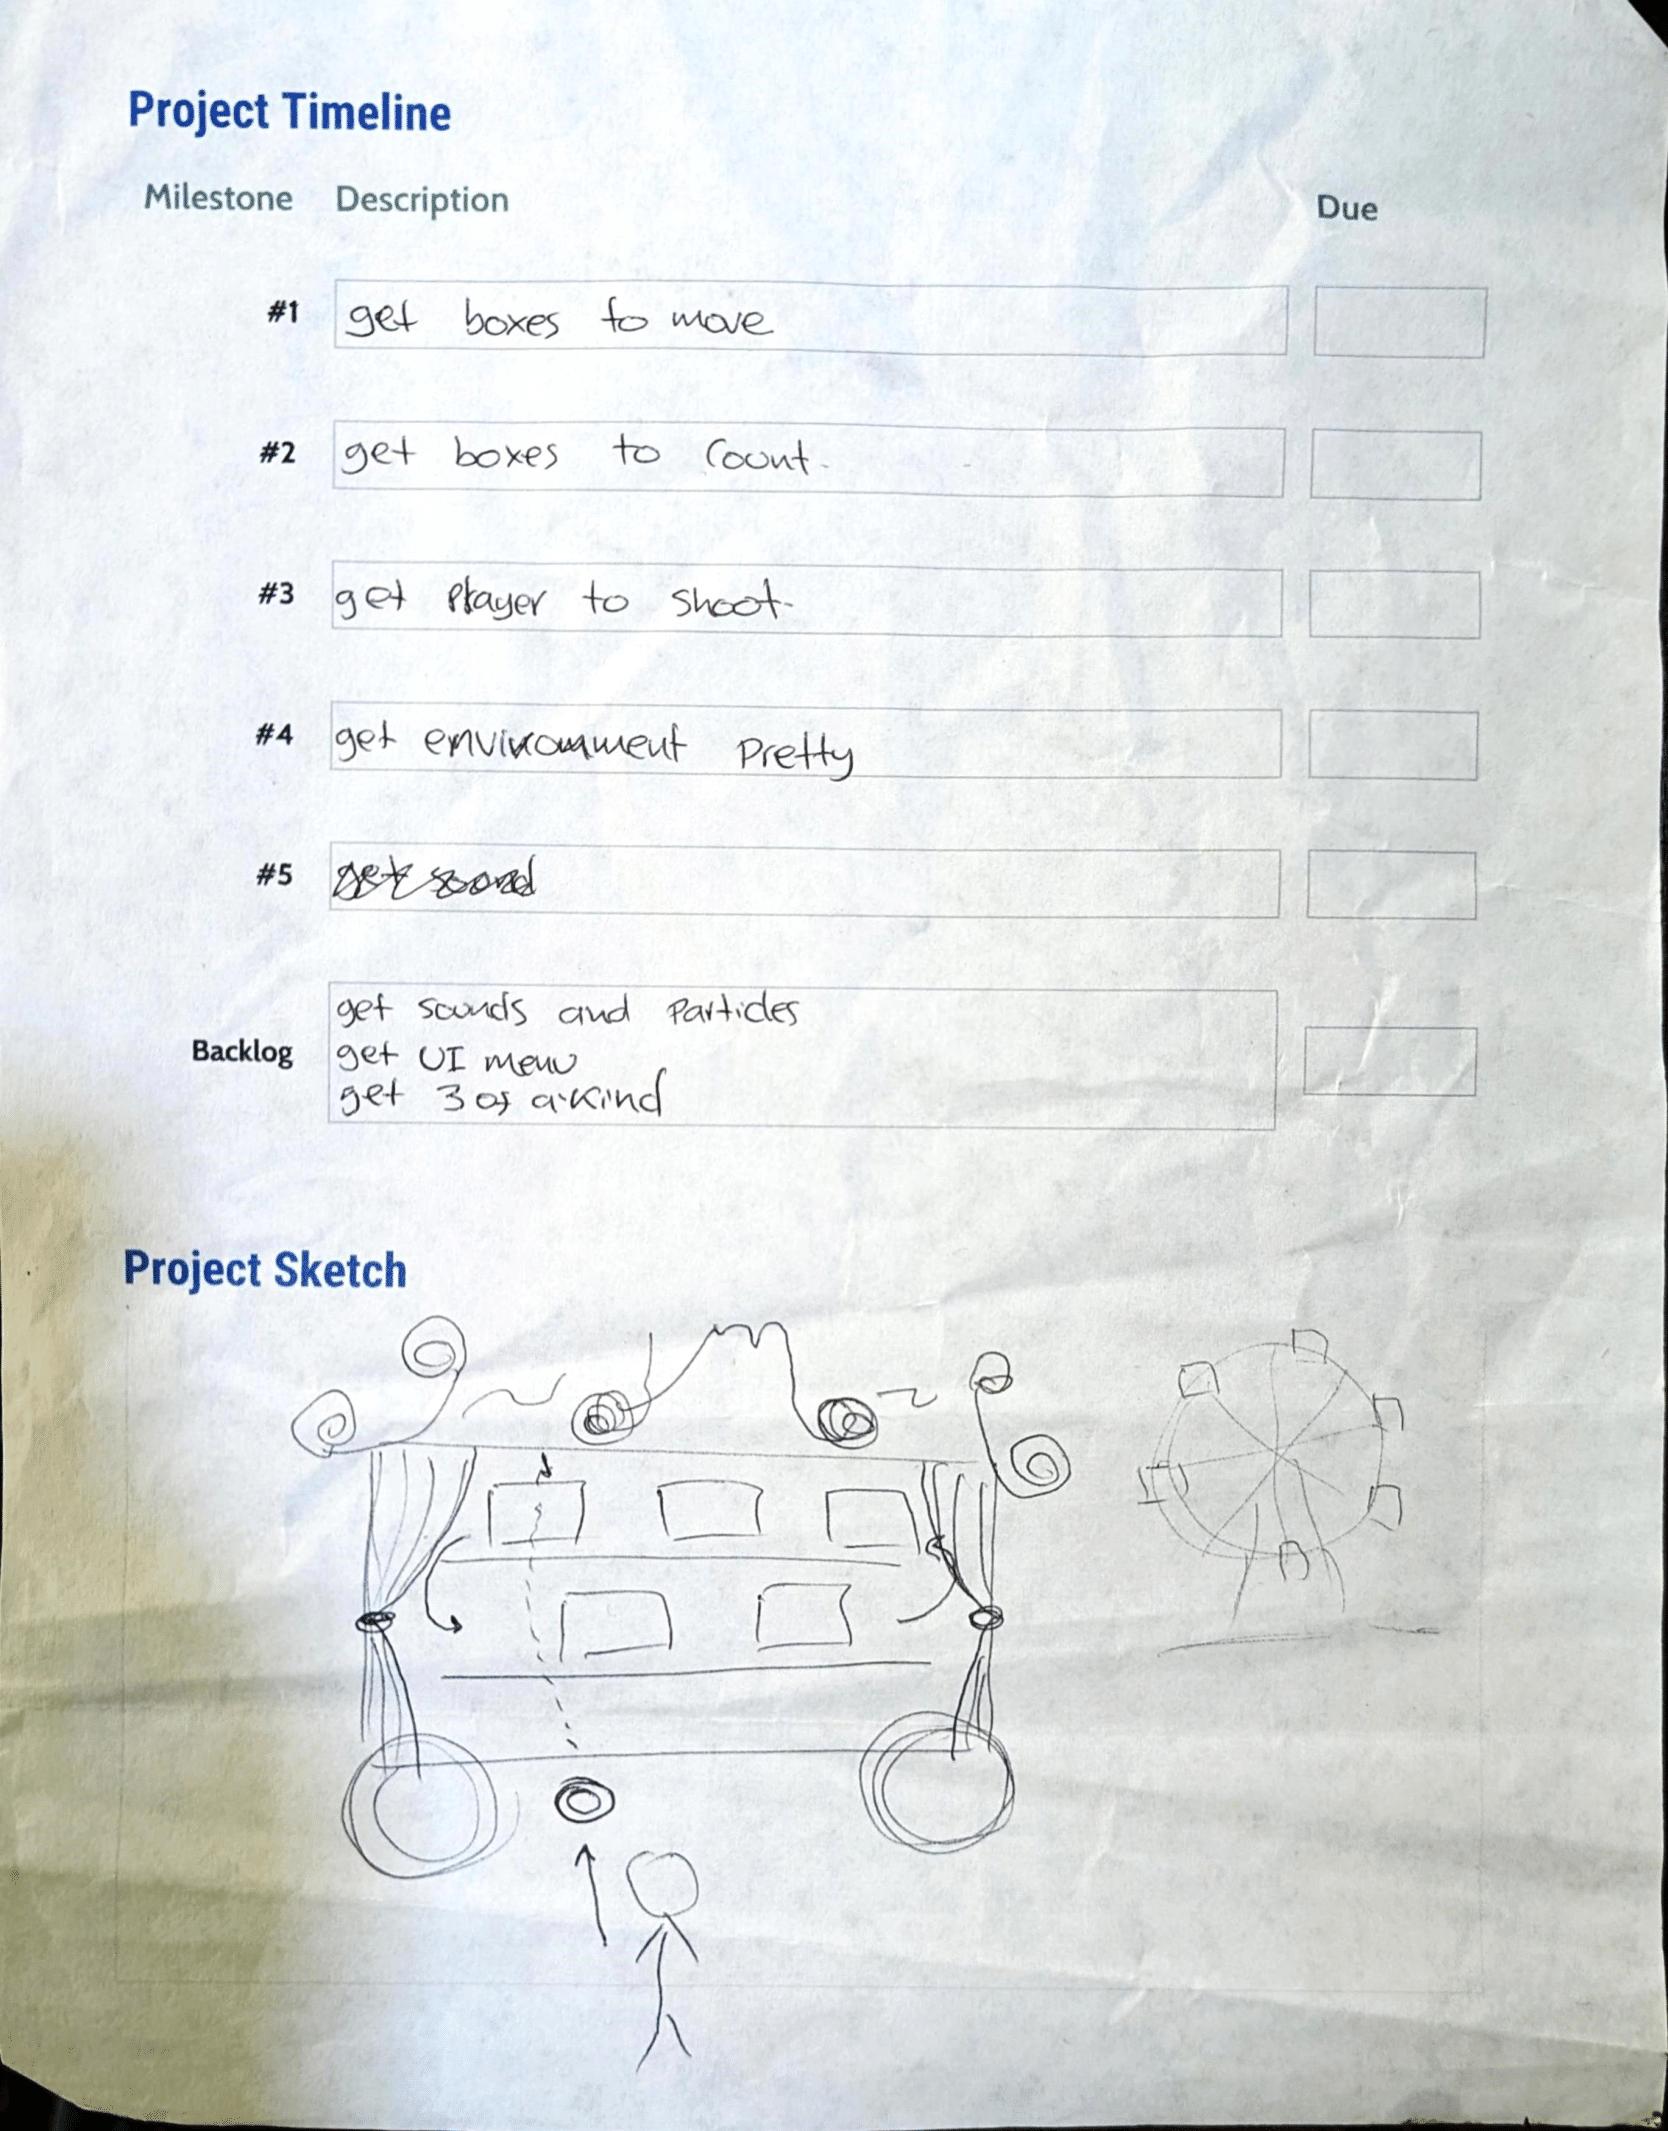 Project Timeline
Milestone Description Due
#1 get boxes to move
#2 get boxes to count.
#3 get player to shoot.
#4 get environment pretty
#5 get sound
Backlog
get sounds and particles
get UI menu
get 3 of a-kind
Project Sketch